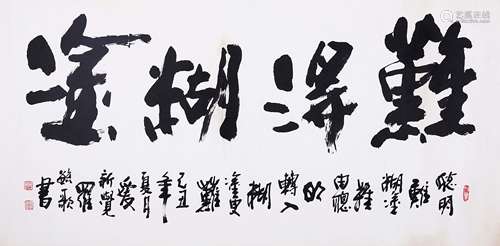 難得糊塗
聰明
難
糊塗
難
由聰
明
轉入
糊
塗更
難
己丑
年
夏月
愛
新覺
羅
書